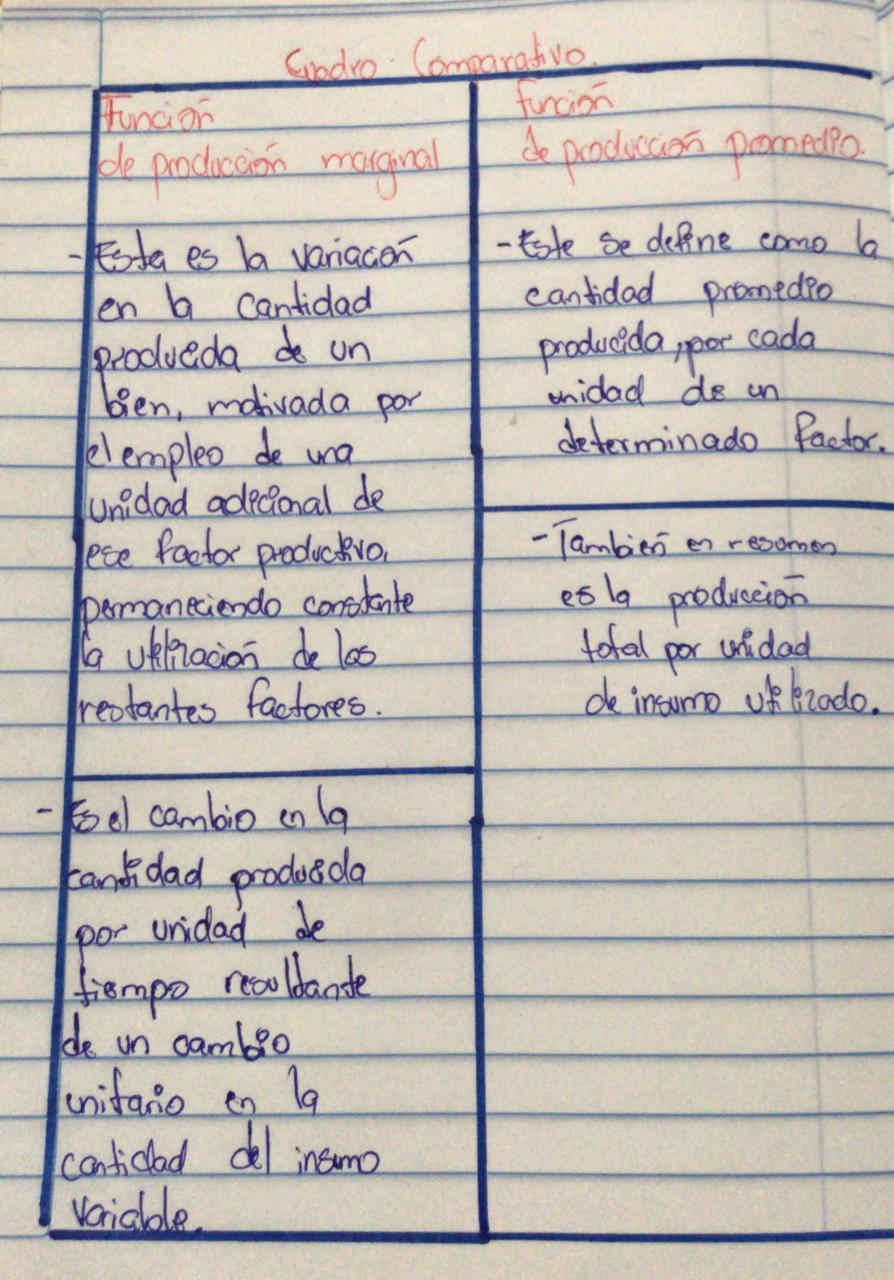 Cuadro Comparativo.
Función
de producción marginal
- Esta es la variación
en la cantidad
producida de un
bien, motivada por
el empleo de una
unidad adicional de
ese factor productivo,
permaneciendo constante
la utilización de los
restantes factores.
- Es el cambio en la
cantidad producida
por unidad de
tiempo resultante
de un cambio
unitario en la
cantidad del insumo
variable.
función
de producción promedio.
- Este se define como la
cantidad promedio
producida, por cada
unidad de un
determinado factor.
- También en resumen
es la producción
total por unidad
de insumo utilizado.